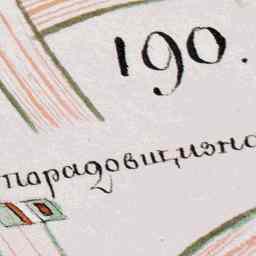 190.
парадовщизно